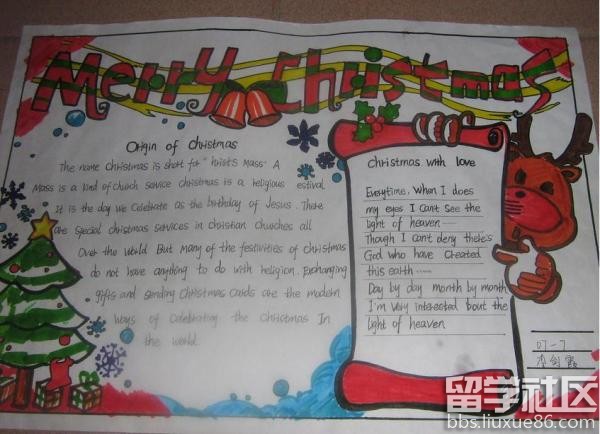 Merry Christmas
Origin of christmas
The name christmas is short for "hrist's Mass" A
Mass is a kind of church service christmas is a religious estival
It is the day we celebrate as the birthday of Jesus. There
are special christmas services in christian churches all
Over the world But many of the festivities of christmas
do not have anything to do with religion. Exchanging
gifts and sending Christmas cards are the modern
ways of celebrating the christmas In
the world.
christmas with love
Everytime, When I does
my eyes I can't see the
light of heaven
Though I can't deny there's
God who have created
this earth
Day by day month by month
I'm very interested 'bout the
light of heaven
07-7
李剑霞
留学社区
bbs.liuxue86.com